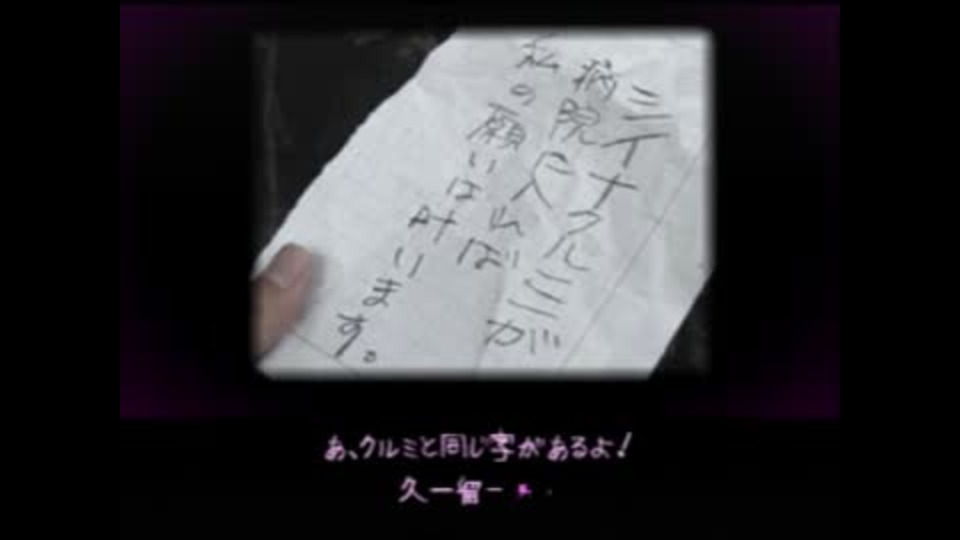 ミイナクルミが
病院に入れば
私の願いは叶います。
あ、クルミと同じ字があるよ！
久一留ー